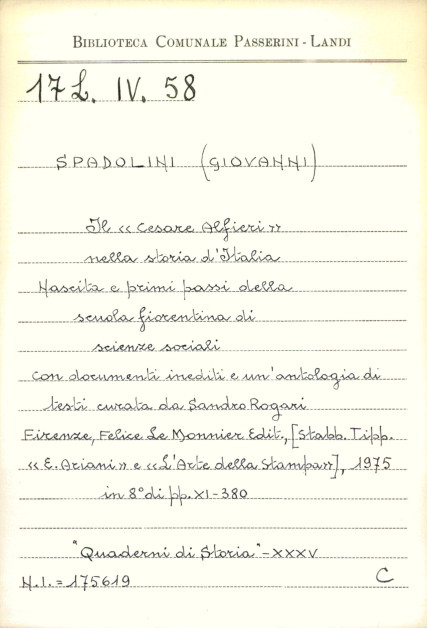 BIBLIOTECA COMUNALE PASSERINI - LANDI
17 L. IV. 58
SPADOLINI (GIOVANNI)
Il « Cesare Alfieri »
nella storia d'Italia
Nascita e primi passi della
scuola fiorentina di
scienze sociali
con documenti inediti e un'antologia di
testi curata da Sandro Rogari
Firenze, Felice Le Monnier Edit., [Stabb. Tipp.
« E. Ariani » e « L'Arte della Stampa»], 1975
in 8° di pp. XI - 380
"Quaderni di Storia" - XXXV
N.I. = 175619 C